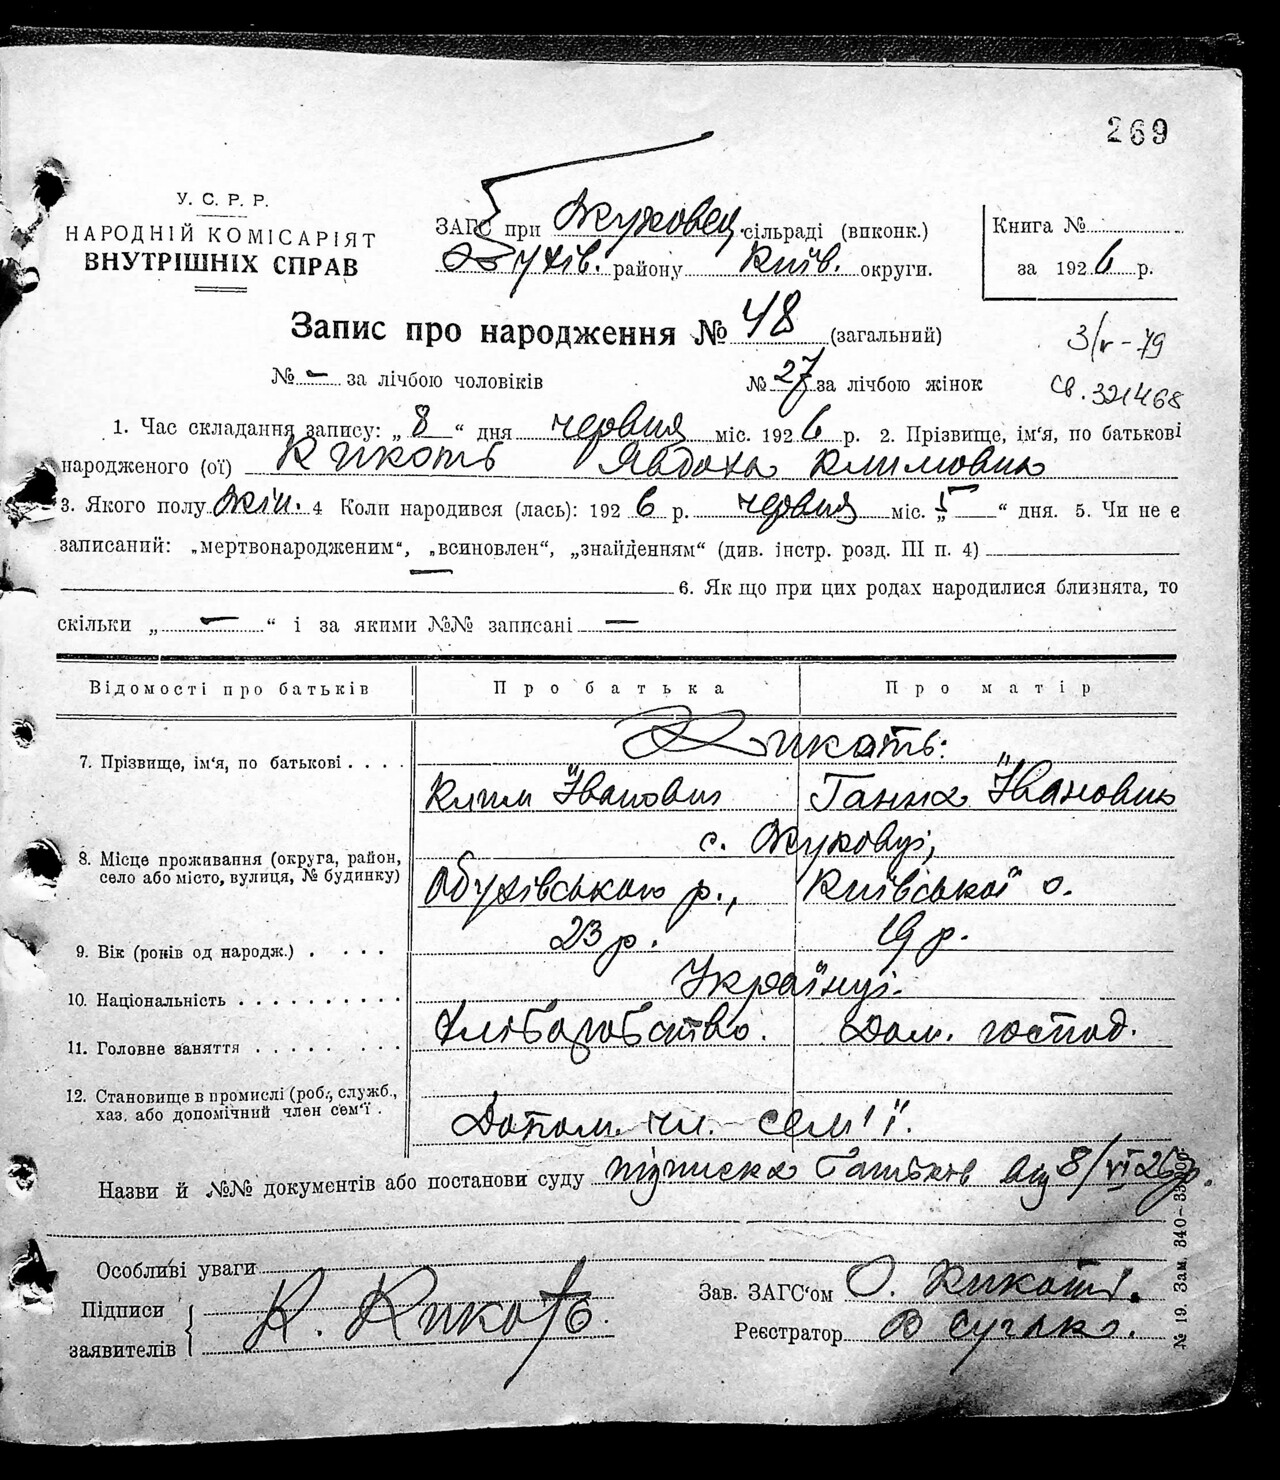 269
У. С. Р. Р.
НАРОДНІЙ КОМІСАРІЯТ
ВНУТРІШНІХ СПРАВ
ЗАГС при Жуковец. сільраді (виконк.)
Обухів. району Київ. округи.
Книга №
за 1926 р.
Запис про народження № 48 (загальний)
3/V - 79
№ - за лічбою чоловіків № 27 за лічбою жінок
св. 321468
1. Час складання запису: „8“ дня червня міс. 1926 р. 2. Прізвище, ім'я, по батькові
народженого (ої) Кикоть Явдоха Климовна
3. Якого полу жін. 4 Коли народився (лась): 1926 р. червня міс. „5“ дня. 5. Чи не є
записаний: „мертвонародженим“, „всиновлен“, „знайденням“ (див. інстр. розд. III п. 4)
— 6. Як що при цих родах народилися близнята, то
скільки „ — “ і за якими №№ записані —
Відомості про батьків Про батька Про матір
Кикоть:
7. Прізвище, ім'я, по батькові . . . .
Клим Іванович Ганна Івановна
с. Жуковці,
8. Місце проживання (округа, район,
село або місто, вулиця, № будинку)
Обухівського р., Київської о.
9. Вік (років од народж.) . . . . 23 р. 19 р.
10. Національність . . . . . . . . . . Українці.
11. Головне заняття . . . . . . . . Хліборобство. Дом. господ.
12. Становище в промислі (роб., служб.,
хаз. або допомічний член сем'ї .
Допом. чл. сем'ї.
Назви й №№ документів або постанови суду підписка батьків від 8/VI 26 р.
Особливі уваги
Підписи
заявителів
К. Кикоть.
Зав. ЗАГС'ом О. Кикоть.
Реєстратор В
№ 19. Зам. 340—